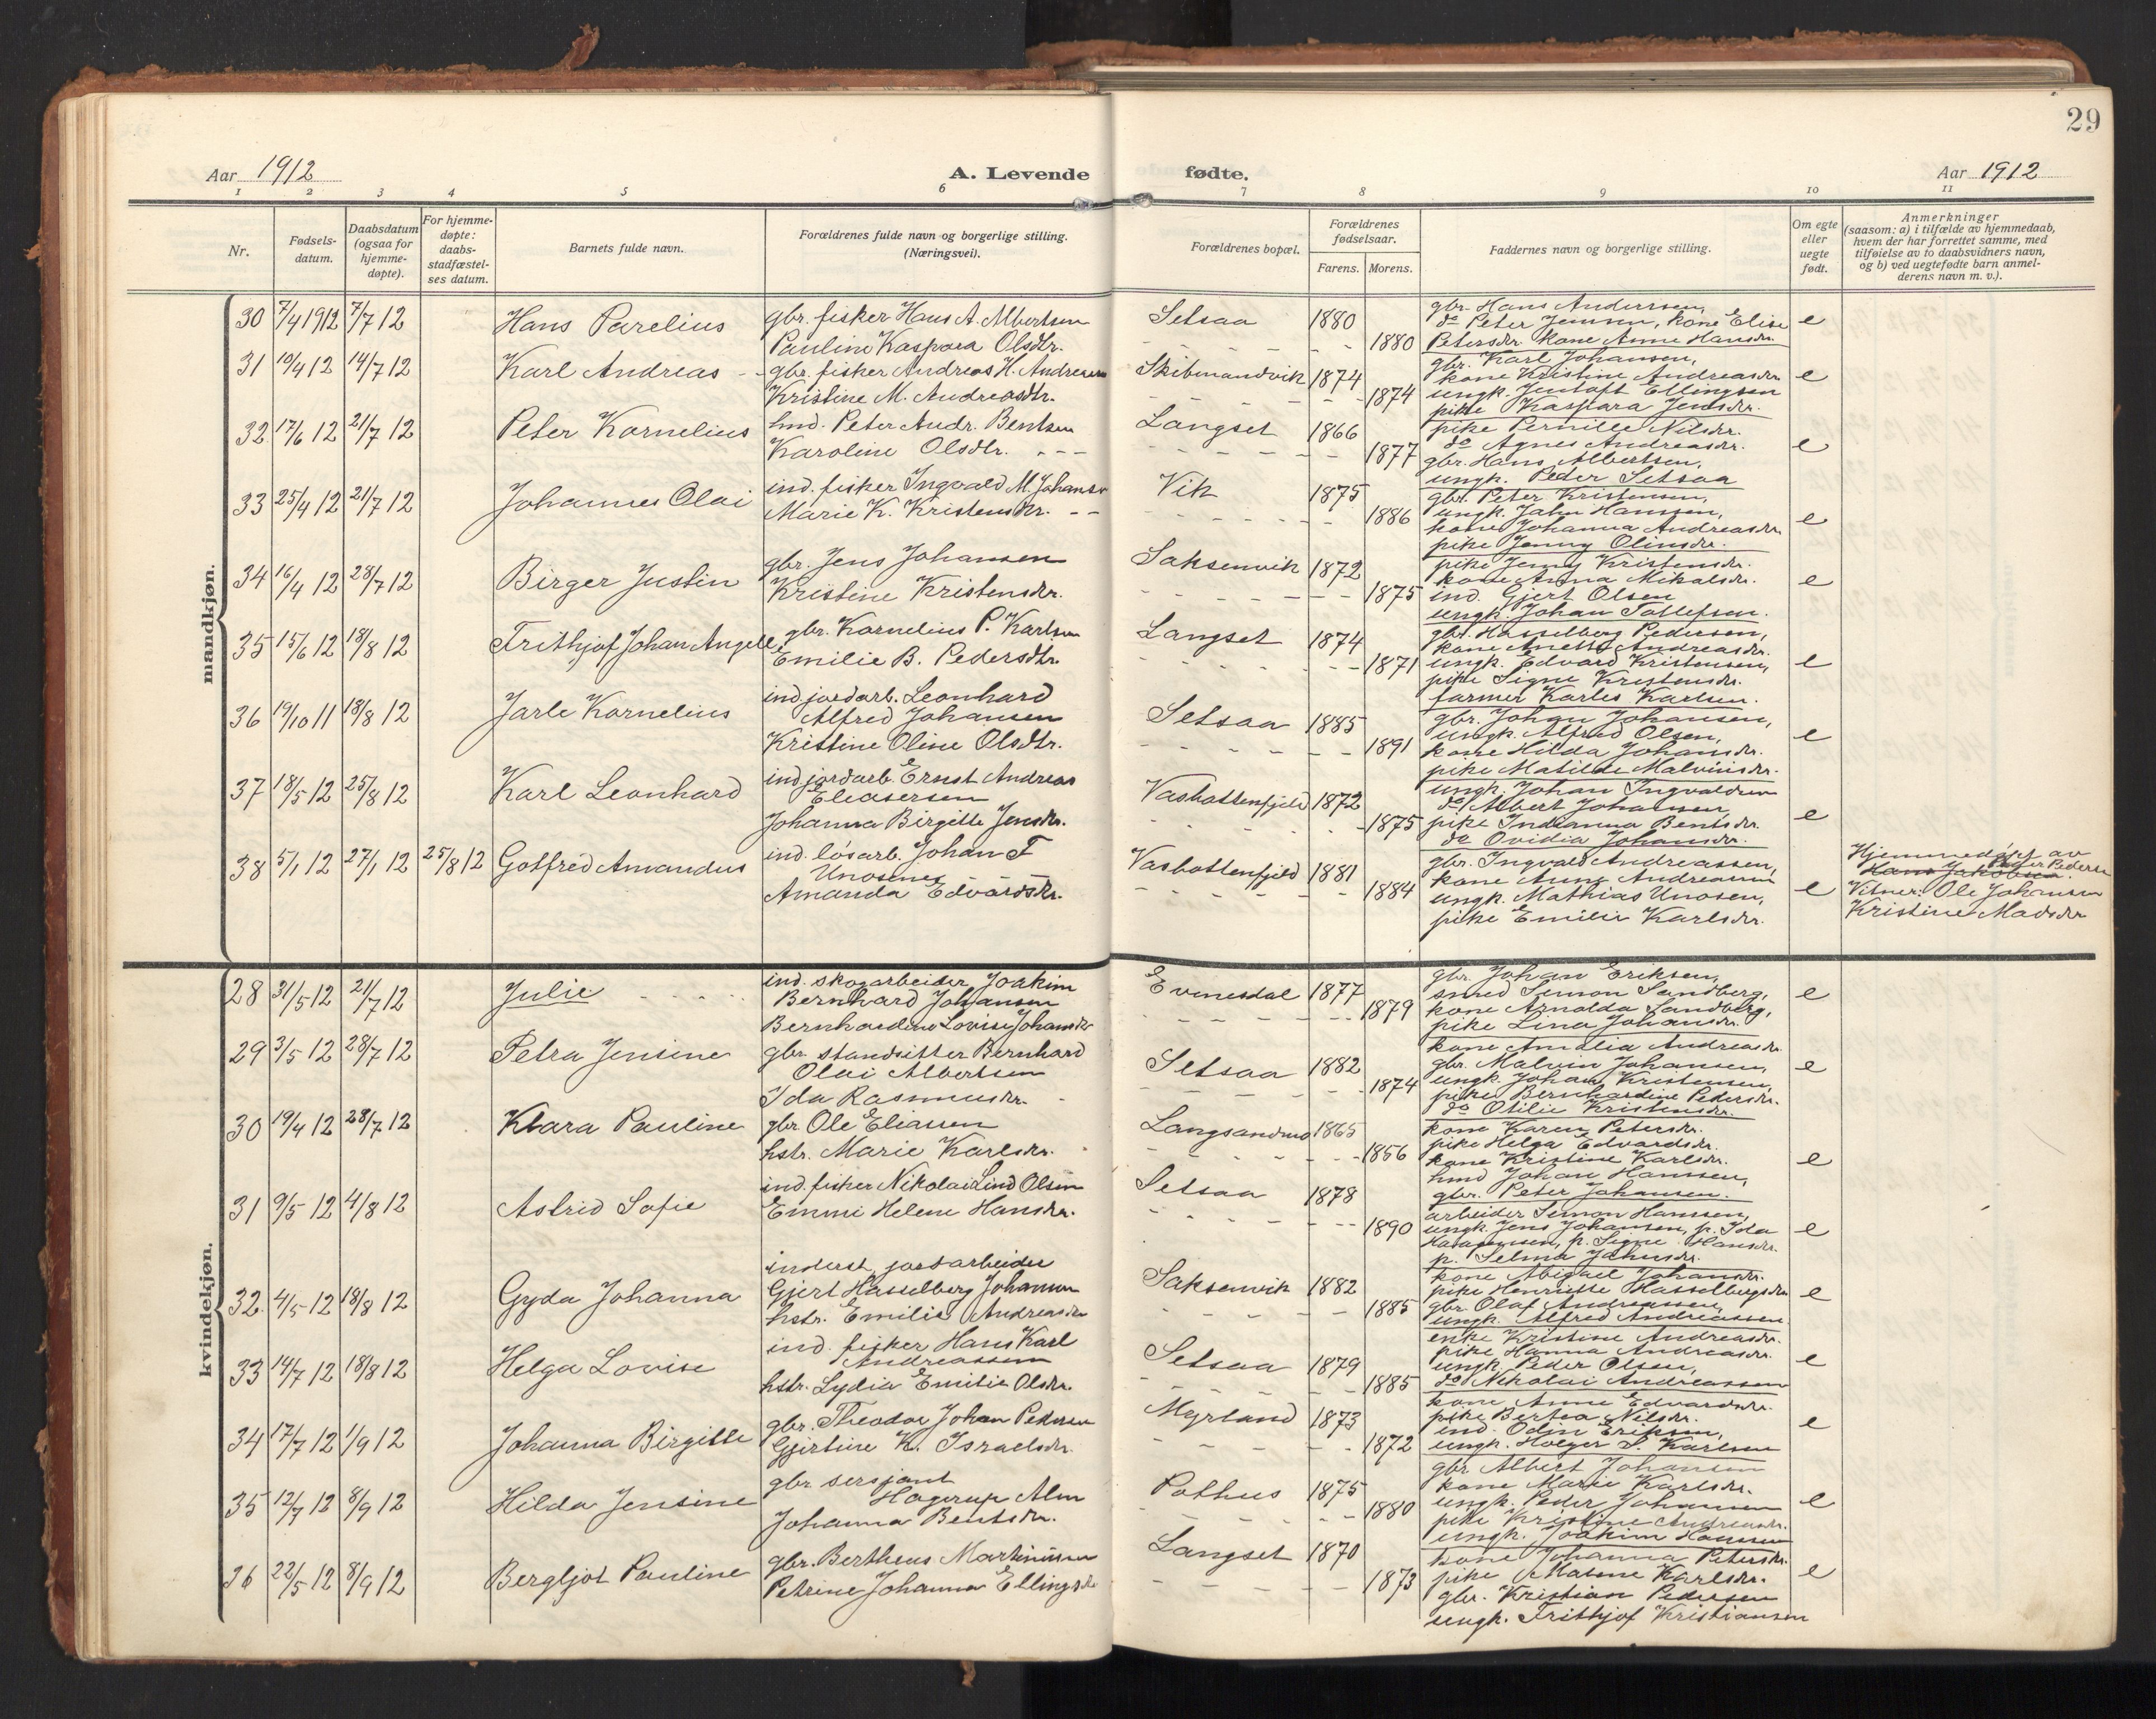 29
Aar 1912
A. Levende
fødte.
Aar 1912
1 2 3 4 5 6 7 8 9 10 11
Nr.
Fødsels-
datum.
Daabsdatum
(ogsaa for
hjemme-
døpte).
For hjemme-
døpte:
daabs-
stadfæstel-
ses datum.
Barnets fulde navn.
Forældrenes fulde navn og borgerlige stilling.
(Næringsvei).
Forældrenes bopæl.
Forældrenes
fødselsaar.
Farens. Morens.
Faddernes navn og borgerlige stilling.
Om egte
eller
uegte
født.
Anmerkninger
(saasom: a) i tilfælde av hjemmedaab,
hvem der har forrettet samme, med
tilføielse av to daabsvidners navn,
og b) ved uegtefødte barn anmel-
derens navn m. v.).
mandkjøn.
30 7/4 1912 7/7 12 Hans Parelius gbr. fisker Hans A. Albertsen
Pauline Kaspara Olsdtr.
Setsaa 1880 1880
gbr. Hans Anderssen,
do Peter Jenssen, kone Elise
Petersdr. kone Anne Hansdr.
e
31 10/4 12 14/7 12 Karl Andreas gbr. fisker Andreas H. Andreassen
Kristine M. Andreasdtr.
Skibmandvik 1874 1874
gbr. Karl Johansen,
kone Kristine Andreasdr.
ungk. Jentoft Ellingsen
pike Kaspara Jensdr.
e
32 17/6 12 21/7 12 Peter Kornelius hmd. Peter Andr. Bentsen
Karoline Olsdtr.
Langset 1866 1877
pike Pernille Nilsdr.
do Agnes Andreasdr.
gbr. Hans Albertsen,
ungk. Peder Setsaa
e
33 25/4 12 21/7 12 Johannes Olai ind. fisker Ingvald M. Johans
Marie K. Kristensdtr.
Vik 1875 1886
gbr. Peter Kristensen,
ungk. Jahn Hanssen,
kone Johanna Andreasdr.
pike Jenny Olinsdr.
e
34 16/4 12 28/7 12 Birger Justin gbr. Jens Johansen
Kristine Kristensdr.
Saksenvik 1872 1875
pike Jenny Kristensdr.
kone Anna Mikalsdr.
ind. Gjert Olsen
ungk. Johan Tollefsen.
e
35 15/6 12 18/8 12 Frithjof Johan Angell gbr. Kornelius P. Karlsen
Emilie B. Pedersdtr.
Langset 1874 1871
gbr. Hasselberg Pedersen,
kone Anette Andreasdr.
ungk. Edvard Kristensen,
pike Signe Kristensdr.
farmer Karles Karlsen.
e
36 19/10 11 18/8 12 Jarle Kornelius ind. jordarb. Leonhard
Alfred Johansen
Kristine Oline Olsdtr.
Setsaa 1885 1891
gbr. Johan Johansen,
ungk. Alfred Olsen,
kone Hilda Johansdr.
pike Matilde Malvinsdr.
e
37 18/5 12 25/8 12 Karl Leonhard ind. jordarb. Ernst Andreas
Eleasersen
Johanna Birgitte Jensdr.
Vasbottenfjeld 1872 1875
ungk. Johan Ingvaldsen
do Albert Johansen,
pike Indianna Bentsdr.
do Ovidia Johansdr.
e
38 5/1 12 27/1 12 25/8 12 Gotfred Amandus ind. løsarb. Johan F
Unosens
Amanda Edvardsdr.
Vasbottenfjeld 1881 1884
gbr. Ingvald Andreassen,
kone Anna Andreassen
ungk. Mathias Unosen,
pike Emilie Karlsdr.
e
Hjemmedøpt av
Peder Pedersen
Hans Jakobsen.
Vitner: Ole Johansen
Kristine Madsdr
kvindekjøn.
28 31/5 12 21/7 12 Julie ind. skogarbeider Joakim
Bernhard Johansen
Bernhardine Lovise Johansdr
Evenesdal 1877 1879
gbr. Johan Eriksen,
smed Simon Sandberg,
kone Arnolda Sandberg,
pike Lina Johansdr.
e
29 3/5 12 28/7 12 Petra Jensine gbr. standsitter Bernhard
Olai Albertsen
Ida Rasmusdr.
Setsaa 1882 1874
kone Amalia Andreasdr.
gbr. Malvin Johansen,
ungk. Johan Kristensen,
pike Bernhardine Pedersdr.
do Otilie Kristensdr.
e
30 19/4 12 28/7 12 Klara Pauline gbr Ole Eliassen
hstr. Marie Karlsdr.
Langsandmo 1865 1856
kone Karen Petersdr.
pike Helga Edvardsdr.
kone Kristine Karlsdr.
hmd Johan Hanssen,
gbr. Peter Johansen.
e
31 9/5 12 4/8 12 Astrid Sofie ind. fisker Nikolai Lind Olsen
Emmi Helene Hansdr.
Setsaa 1878 1890
arbeider Simon Hanssen,
ungk. Jens Johansen, p. Ida
p. Signe Hansdr.
p. Selma Johnsdr.
e
32 4/5 12 18/8 12 Gyda Johanna inderst, jordarbeider
Gjert Hasselberg Johansen
hstr. Emilie Andreasdr
Saksenvik 1882 1885
kone Abigael Johansdr.
pike Henriette Hasselbergsdr
gbr. Olaf Andreassen,
ungk. Alfred Andreassen
e
33 14/7 12 18/8 12 Helga Lovise ind. fisker Hans Karl
Andreassen
hstr. Lydia Emilie Olsdr.
Setsaa 1879 1885
enke Kristine Andreasdr.
pike Hanna Andreasdr.
ungk. Peder Olsen,
do Nikolai Andreassen
e
34 17/7 12 1/9 12 Johanna Birgitte gbr. Theodor Johan Pedersen
Gjertine K. Israelsdr.
Myrland 1873 1872
kone Anne Edvardsdr.
pike Bertea Nilsdr.
ind. Odin Eriksen,
ungk. Holger S. Karlsen
e
35 12/7 12 8/9 12 Hilda Jensine gbr sersjant
Hagerup Alm
Johanna Bentsdr.
Pothus 1875 1880
gbr Albert Johansen
kone Marie Karlsdr.
ungk. Peder Johansen
pike Kristine Andreasdr.
ungk. Joakim Hanssen
e
36 22/5 12 8/9 12 Bergljot Pauline gbr. Bertheus Martinussen
Petrine Johanna Ellingsdr
Langset 1870 1873
kone Johanna Petersdr.
pike Malene Karlsdr.
gbr. Kristian Pedersen
ungk. Frithjof Kristiansen
e